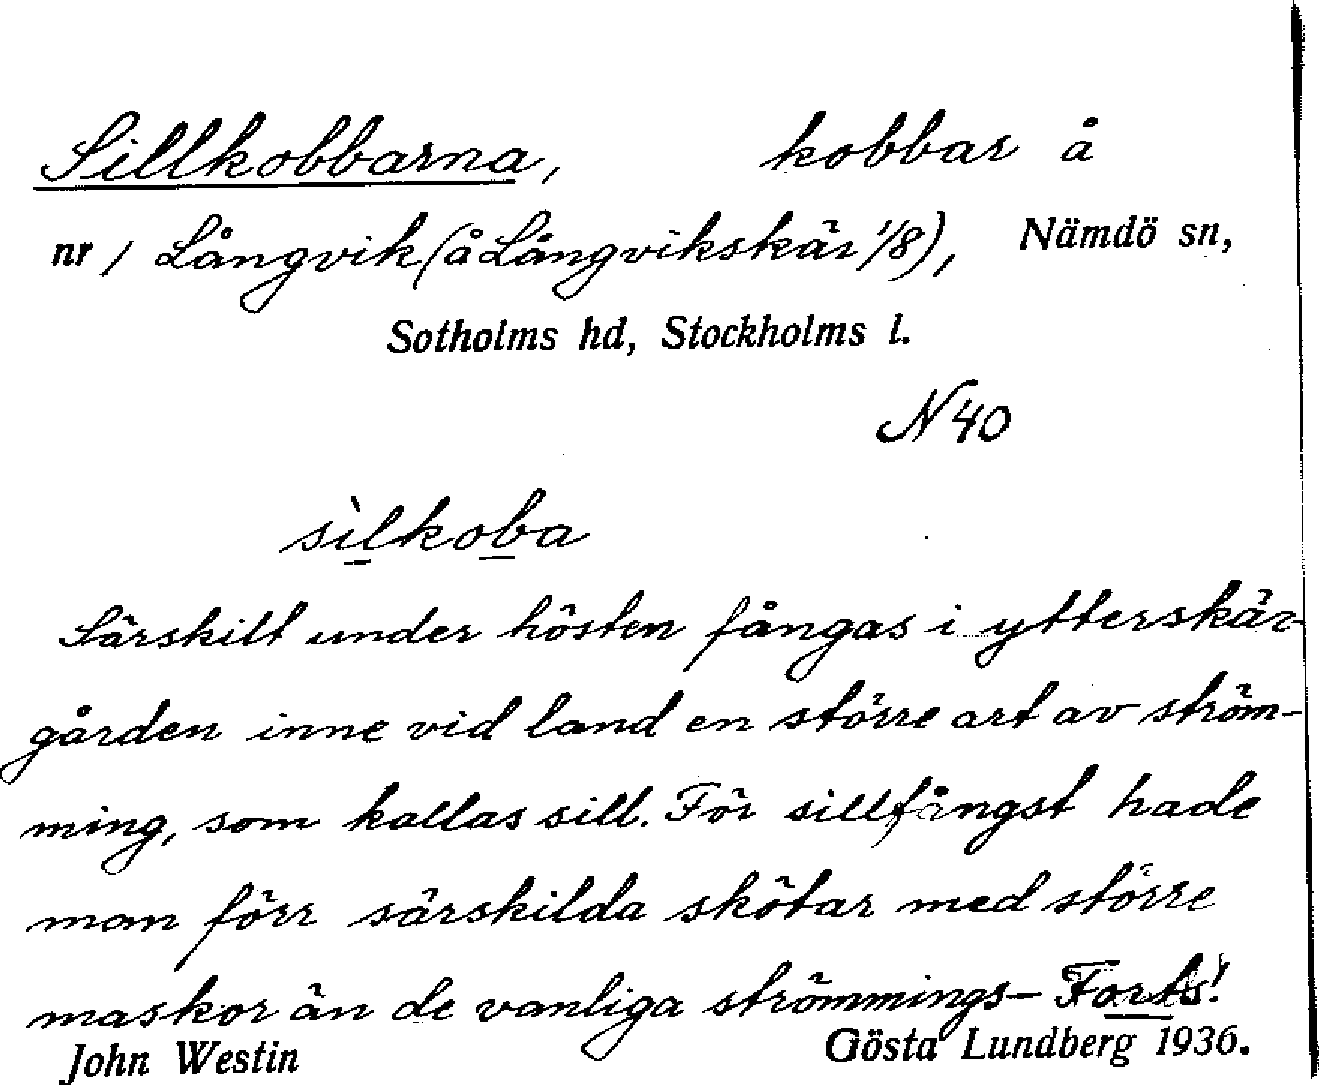 Sillkobbarna, kobbar å
nr 1 Långvik (å Långvikskär 1/8), Nämdö sn,
Sotholms hd, Stockholms l.
N 40
sìlkoba
Särskilt under hösten fångas i ytterskär-
gården inne vid land en större art av ström-
ming, som kallas sill. För sillfångst hade
man förr särskilda skötar med större
maskor än de vanliga strömmings- Forts!
John Westin Gösta Lundberg 1936.